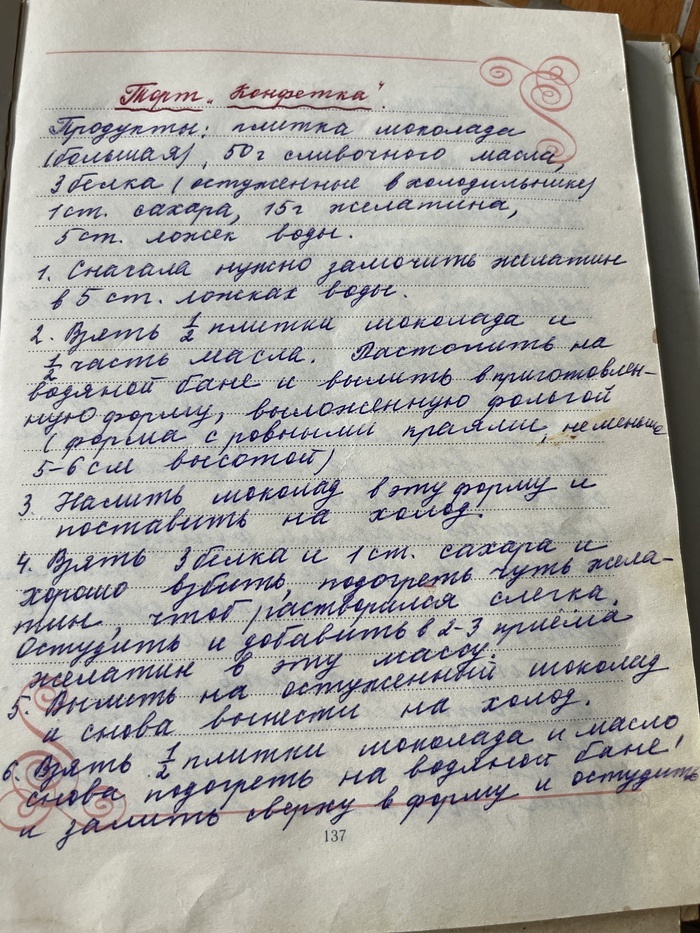 Торт „Конфетка".
Продукты: плитка шоколада
(большая), 50г сливочного масла,
3 белка (остуженные в холодильнике)
1 ст. сахара, 15г желатина,
5 ст. ложек воды.
1. Сначала нужно замочить желатин
в 5 ст. ложках воды.
2. Взять 1/2 плитки шоколада и
1/2 часть масла. Растопить на
водяной бане и вылить в приготовлен-
ную форму, выложенную фольгой
(форма с ровными краями, не меньше
5-6 см высотой)
3. Налить шоколад в эту форму и
поставить на холод.
4. Взять 3 белка и 1 ст. сахара и
хорошо взбить, подогреть чуть жела-
тин, чтоб растворился слегка.
Остудить и добавить в 2-3 приёма
желатин в эту массу.
5. Вылить на остуженный шоколад
и снова вынести на холод.
6. Взять 1/2 плитки шоколада и масло
снова подогреть на водяной бане!
и залить сверху в форму и остудить
137